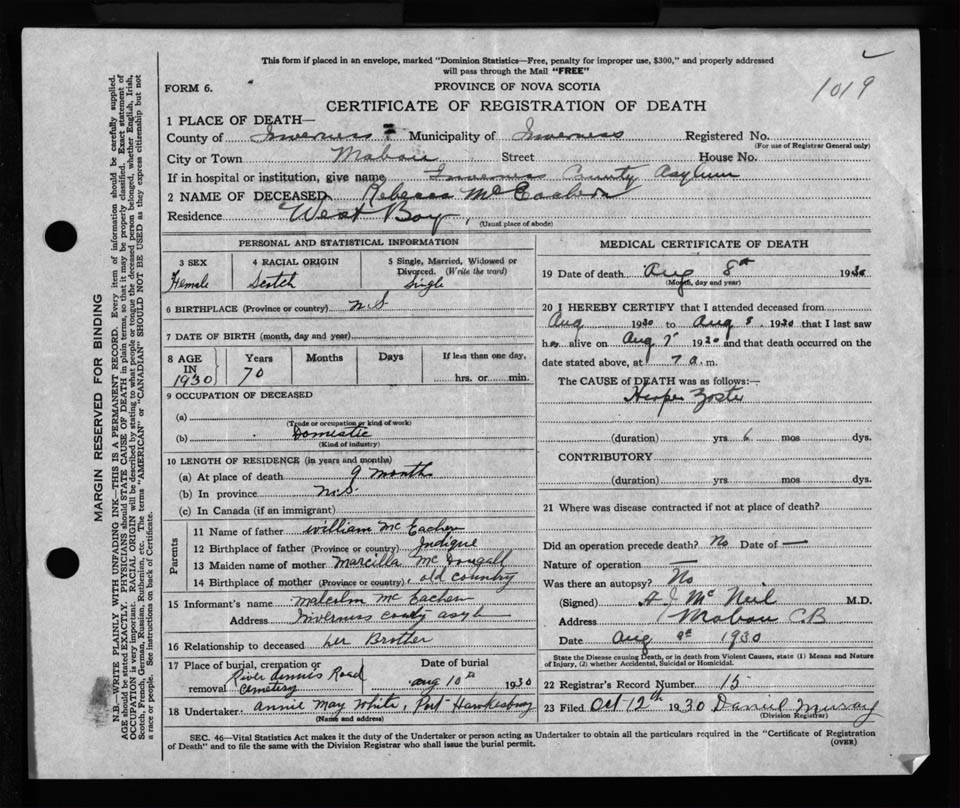 This form if placed in an envelope, marked "Dominion Statistics—Free, penalty for improper use, $300," and properly addressed
will pass through the Mail "FREE"
1019
FORM 6.
PROVINCE OF NOVA SCOTIA
CERTIFICATE OF REGISTRATION OF DEATH
1 PLACE OF DEATH—
County of Inverness Municipality of Inverness Registered No.
(For use of Registrar General only)
City or Town Mabou Street House No.
If in hospital or institution, give name Inverness County Asylum
2 NAME OF DECEASED Rebecca McEachern
Residence West Bay,
(Usual place of abode)
PERSONAL AND STATISTICAL INFORMATION
3 SEX
Female
4 RACIAL ORIGIN
Scotch
5 Single, Married, Widowed or
Divorced. (Write the word)
Single
6 BIRTHPLACE (Province or country) N.S
7 DATE OF BIRTH (month, day and year)
8 AGE
IN
1930
Years
70
Months
Days
If less than one day,
hrs. or min.
9 OCCUPATION OF DECEASED
(a)
(Trade or occupation or kind of work)
(b) Domestic
(Kind of industry)
10 LENGTH OF RESIDENCE (in years and months)
(a) At place of death 9 months
(b) In province N.S.
(c) In Canada (if an immigrant)
Parents
11 Name of father William McEachern
12 Birthplace of father (Province or country) Indique
13 Maiden name of mother Marcilla McDougall
14 Birthplace of mother (Province or country) old country
15 Informant's name Malcolm McEachern
Address Inverness county asyl
16 Relationship to deceased her Brother
17 Place of burial, cremation or
removal River Dennis Road
Cemetery
Date of burial
Aug 10th 1930
18 Undertaker Annie May White, Port Hawkesbury
(Name and address)
MEDICAL CERTIFICATE OF DEATH
19 Date of death Aug 8th 1930
(Month, day and year)
20 I HEREBY CERTIFY that I attended deceased from
Aug 1930 to Aug 8 1930 that I last saw
her alive on Aug 7th 1930 and that death occurred on the
date stated above, at 7 a.m.
The CAUSE of DEATH was as follows:—
Herpes Zoster
(duration) yrs 6 mos dys.
CONTRIBUTORY
(duration) yrs mos dys.
21 Where was disease contracted if not at place of death?
Did an operation precede death? No Date of —
Nature of operation —
Was there an autopsy? No
(Signed) A J McNeil M.D.
Address Mabou CB
Date Aug 9th 1930
State the Disease causing Death, or in death from Violent Causes, state (1) Means and Nature
of Injury, (2) whether Accidental, Suicidal or Homicidal.
22 Registrar's Record Number 15
23 Filed Oct 12th 1930 Daniel Murray
(Division Registrar)
SEC. 46—Vital Statistics Act makes it the duty of the Undertaker or person acting as Undertaker to obtain all the particulars required in the "Certificate of Registration
of Death" and to file the same with the Division Registrar who shall issue the burial permit.
(OVER)
MARGIN RESERVED FOR BINDING
N.B.—WRITE PLAINLY WITH UNFADING INK—THIS IS A PERMANENT RECORD. Every item of information should be carefully supplied.
AGE should be stated EXACTLY. PHYSICIANS should STATE CAUSE OF DEATH in plain terms, so that it may be properly classified. Exact statement of
OCCUPATION is very important. RACIAL ORIGIN will be described by stating to what people or tongue the deceased person belonged, whether English, Irish,
Scotch, French, German, Russian, Ruthenian, etc. The terms "AMERICAN" or "CANADIAN" SHOULD NOT BE USED as they express citizenship but not
a race or people. See instructions on back of Certificate.